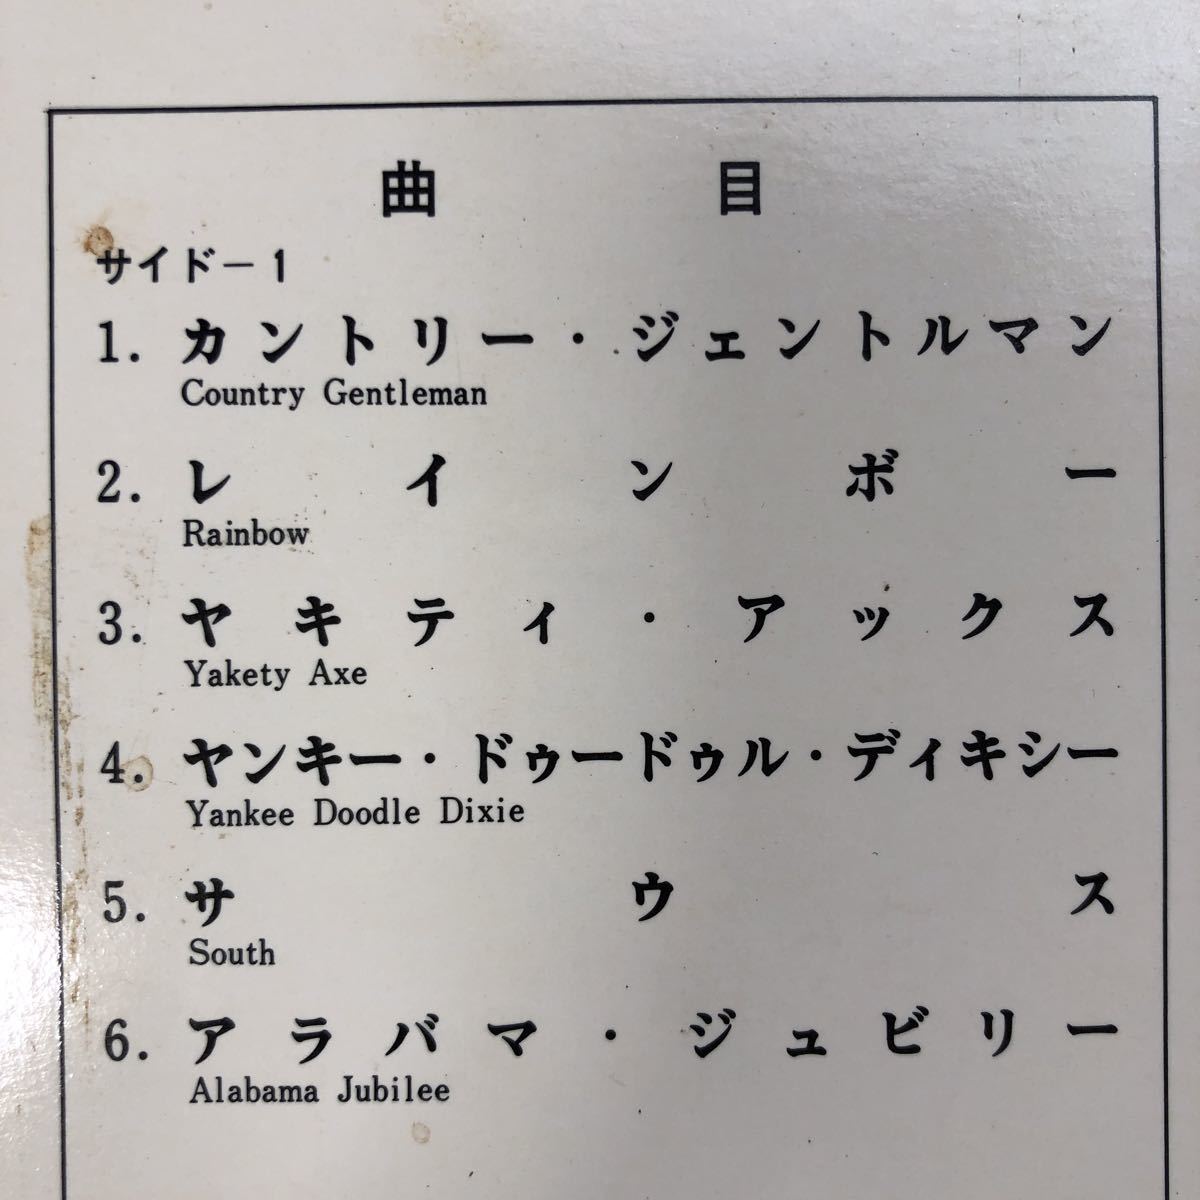 曲目
サイド－1
1. カントリー・ジェントルマン
Country Gentleman
2. レインボー
Rainbow
3. ヤキティ・アックス
Yakety Axe
4. ヤンキー・ドゥードゥル・ディキシー
Yankee Doodle Dixie
5. サウス
South
6. アラバマ・ジュビリー
Alabama Jubilee